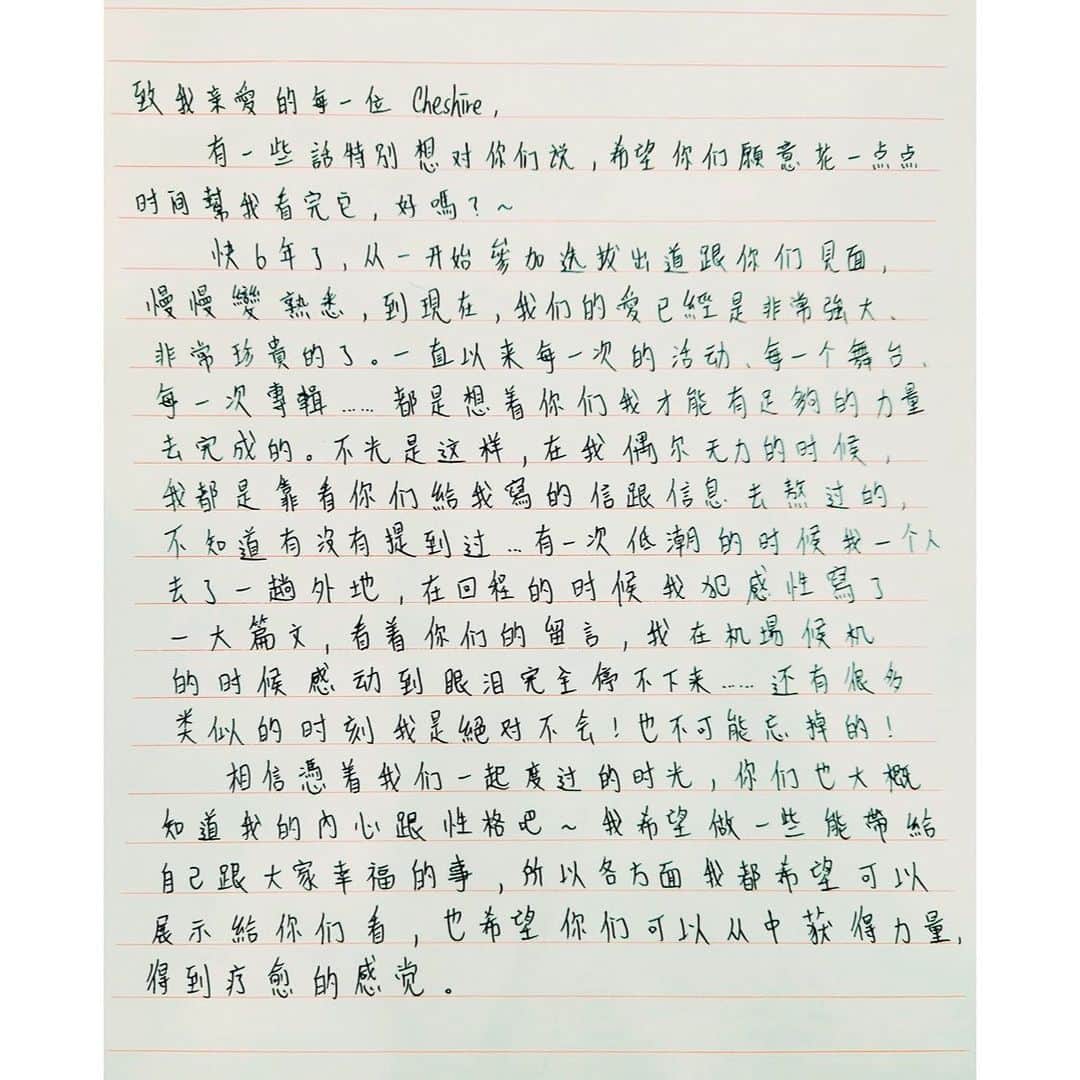 致我亲愛的每一位 Cheshire,
有一些話特別想对你们说，希望你们願意花一点点
时间幫我看完它，好嗎？~
快6年了，从一开始參加选拔出道跟你们見面，
慢慢變熟悉，到現在，我们的愛已經是非常強大、
非常珍貴的了。一直以来每一次的活动、每一个舞台、
每一次專輯……都是想着你们我才能有足夠的力量
去完成的。不光是这样，在我偶尔无力的时候，
我都是靠看你们給我寫的信跟信息去熬过的，
不知道有沒有提到过…有一次低潮的时候我一个人
去了一趟外地，在回程的时候我犯感性寫了
一大篇文，看着你们的留言，我在机場候机
的时候感动到眼泪完全停不下来……还有很多
类似的时刻我是絕对不会！也不可能忘掉的！
相信憑着我们一起度过的时光，你们也大概
知道我的內心跟性格吧~我希望做一些能帶給
自己跟大家幸福的事，所以各方面我都希望可以
展示給你们看，也希望你们可以从中获得力量，
得到疗愈的感觉。